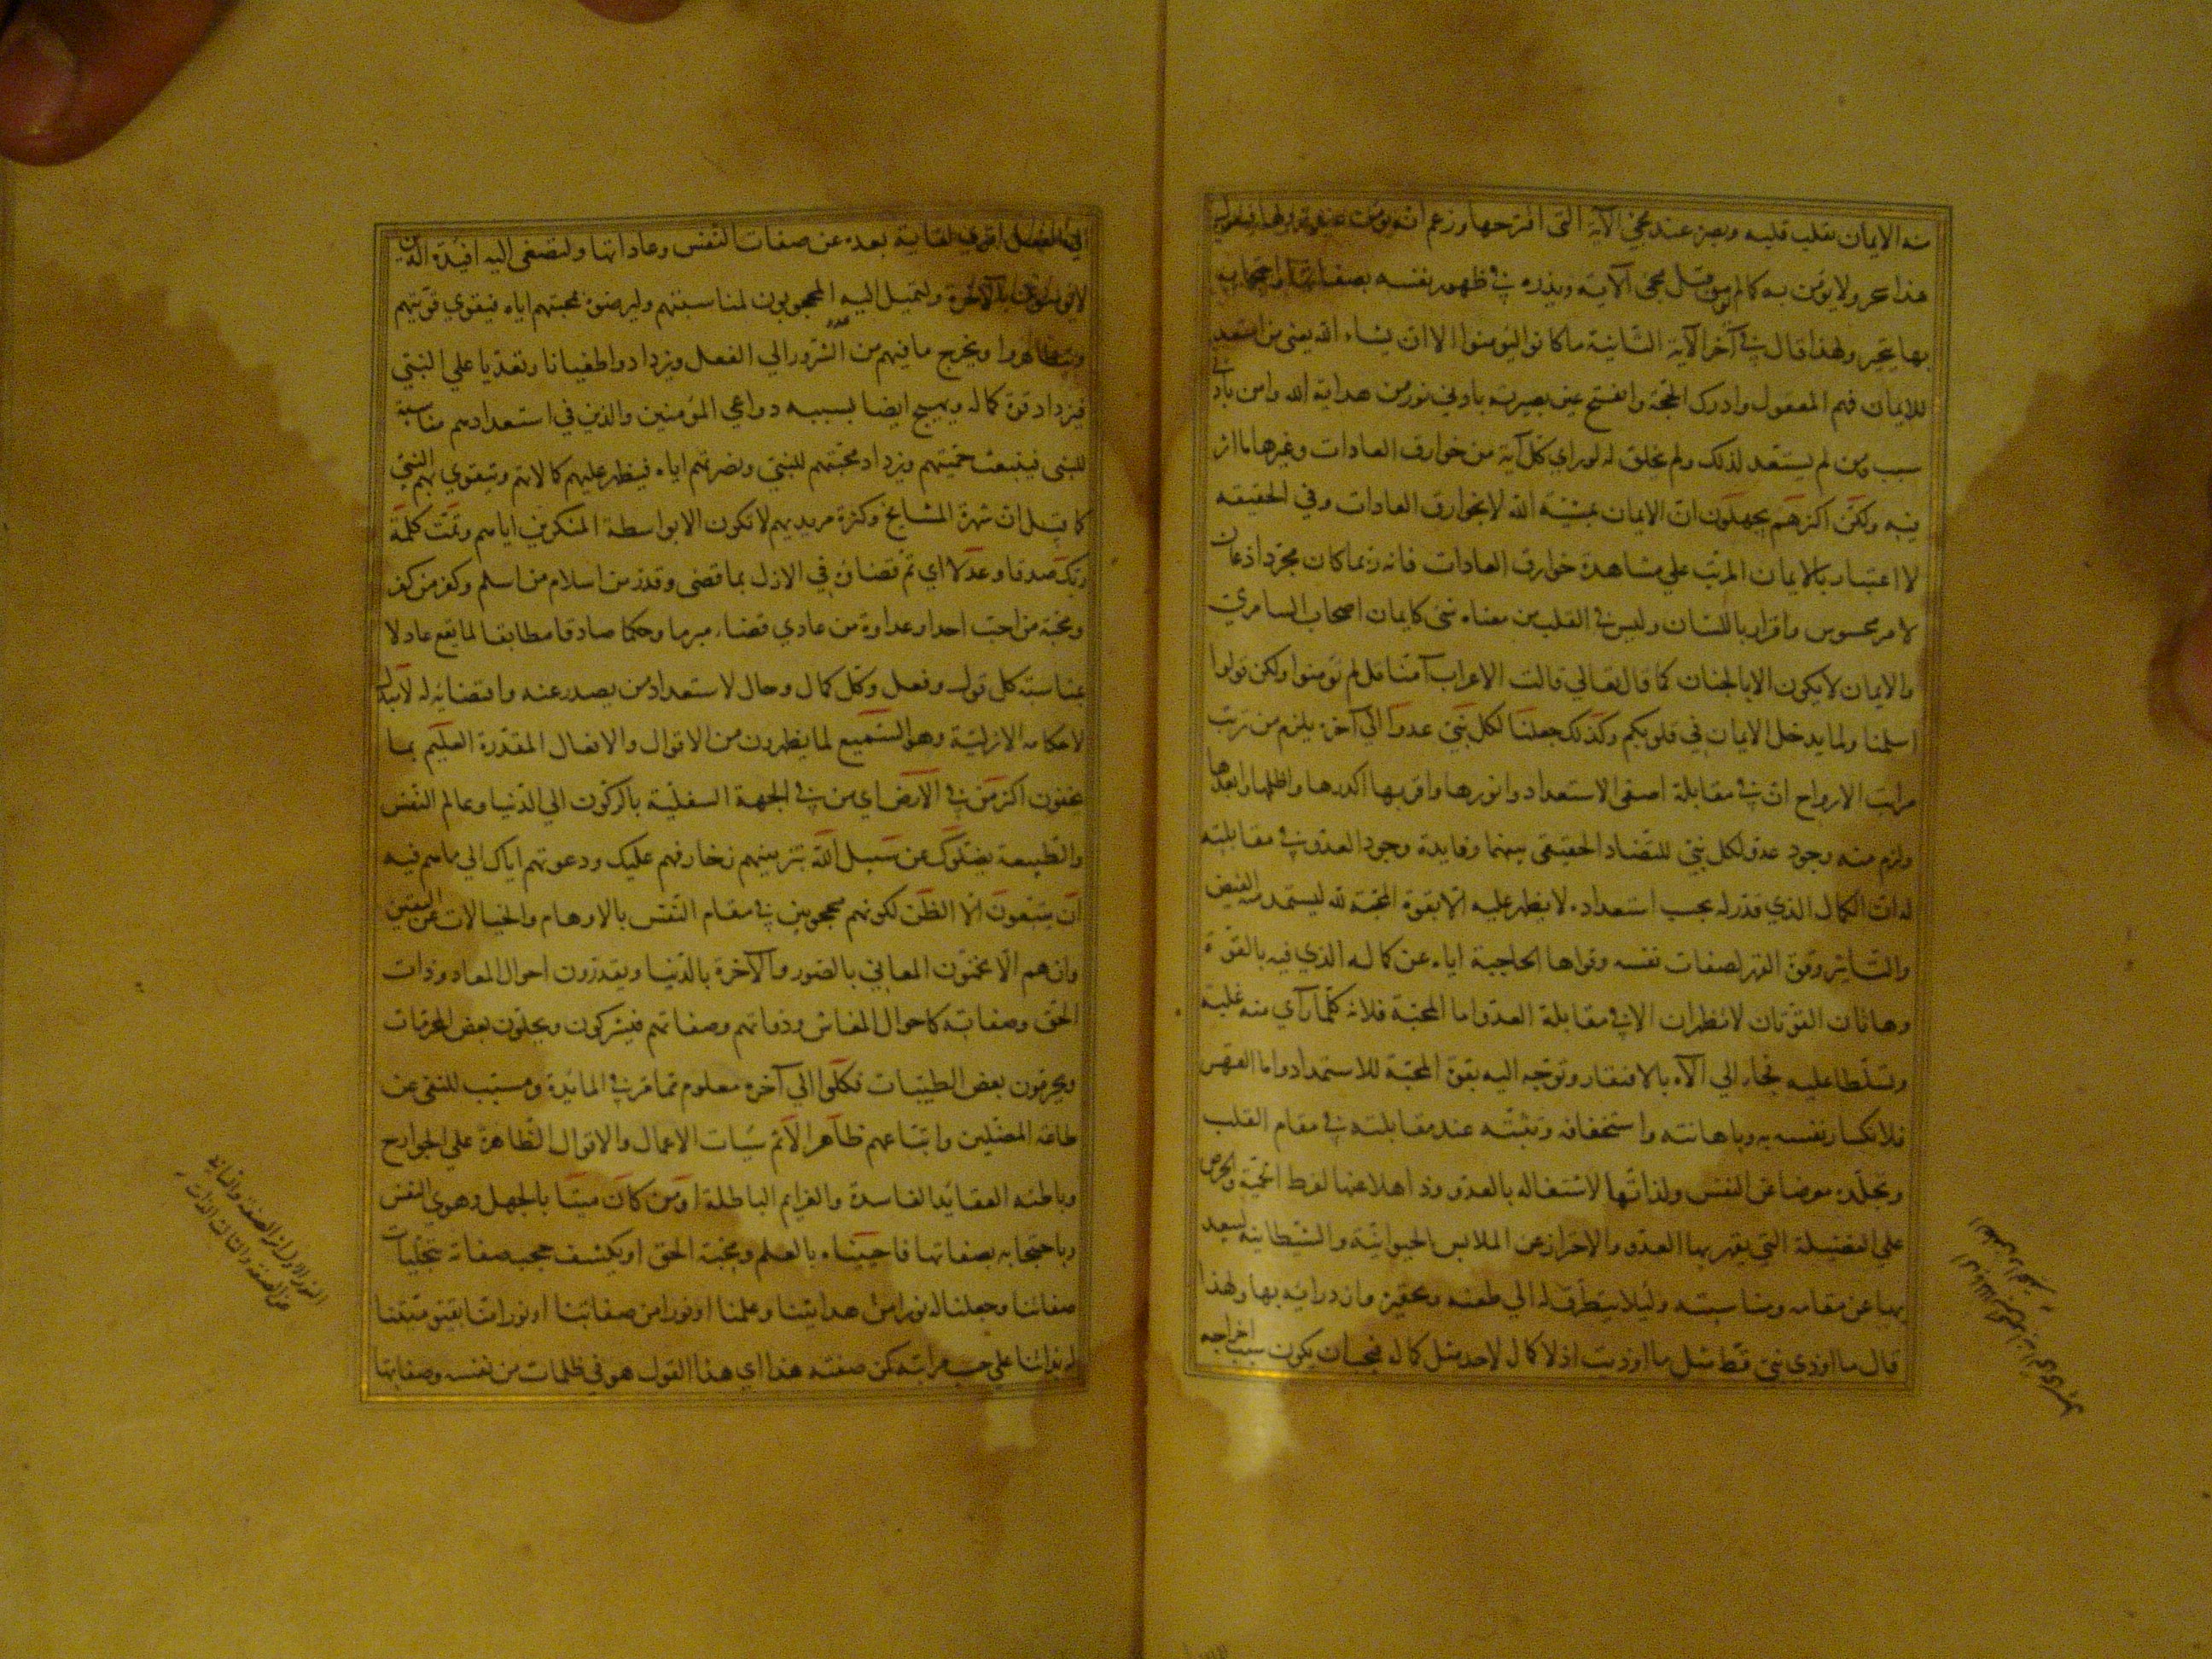 منه الايمان يقلب قلبه وبصره عند مجئ الآية التى اقترحها وزعم انه يؤمن عند نزولها فيقول
هذا سحر ولا يؤمن به كما لم يؤمن قبل مجئ الآية ويذره فى ظهور نفسه بصفاتها واحتجابه
بها يتحير ولهذا قال فى آخر الآية الثانية ما كانوا ليؤمنوا الا ان يشاء الله يعنى من استعد
للايمان فهم المعقول وادرك الحجة وانفتح عين بصيرته بادنى نور من هداية الله وامن بادنى
سبب ومن لم يستعد لذلك ولم يخلق له لو راى كل آية من خوارق العادات وغيرها ما اثر
فيه ولكن اكثرهم يجهلون ان الايمان بمشيئة الله لا بخوارق العادات وفي الحقيقه
لا اعتبار بالايمان المرتب علي مشاهدة خوارق العادات فانه ربما كان مجرد اذعان
لامر محسوس واقرار باللسان وليس فى القلب من معناه شئ كايمان اصحاب السامري
والايمان لا يكون الا بالجنان كما قال تعالي قالت الاعراب آمنا قل لم تؤمنوا ولكن قولوا
اسلمنا ولما يدخل الايمان في قلوبكم وكذلك جعلنا لكل نبي عدوا الي آخره يلزم من ترتب
مراتب الارواح ان فى مقابلة اصفى الاستعداد وانورها واقربها اكدرها واظلمها وابعدها
ولزم منه وجود عدو لكل نبي للتضاد الحقيقى بينهما وفايدة وجود العدو فى مقابلته
له ان الكمال الذي قدر له بحسب استعداده لا يظهر عليه الا بقوة المحبة لله ليستمد منه الفيض
والتاثير وقوة القهر لصفات نفسه وقواها الحاجبة اياه عن كماله الذي فيه بالقوة
وهاتان القوتان لا تظهران الا فى مقابلة العدو اما المحبة فلانه كلما رآي منه غلبة
وتسلطا عليه تجار الي الآه بالافتقار وتوجه اليه بقوة المحبة للاستمداد واما القهر
فلانكسار نفسه به وباهانته واستخفافه وتثبته عند مقابلته فى مقام القلب
وتجلده معرضا عن النفس ولذاتها لاشتغاله بالعدو وذاهلا عنها لفرط الحمية والحرص
علي الفضيلة التي يقهر بها العدو والاحتراز عن الملابس الحيوانية والشيطانية ليبعد
بها عن مقامه ومناسبته وليلا يتطرق له الي طعنه وتحقيره وازدرائه بها ولهذا
قال ما اوذى نبي قط مثل ما اوذيت اذ لا كمال لاحد مثل كماله فيجب ان يكون سبب اخراجه
الى الفعل اقوي لغاية بعده عن صفات النفس وعاداتها ولتصغى اليه افئدة الذين
لا يؤمنون بالآخرة ولتميل اليه المحجوبون لمناسبتهم وليرضوه لمحبتهم اياه فيقوي قوتهم
ويتظاهروا ويخرج ما فيهم من الشرور الي الفعل ويزدادوا طغيانا وتعديا علي النبي
فيزداد قوة كماله ويهيج ايضا بسببه دواعي المؤمنين والذين في استعدادهم مناسبة
للنبى فينبعث حميتهم ويزداد محبتهم للنبي ونصرتهم اياه فيظهر عليهم كمالاتهم ويتقوي بهم النبي
كما قيل ان شهرة المشايخ وكثرة مريديهم لا تكون الا بواسطة المنكرين اياهم وتمت كلمة
ربك صدقا وعدلا اي تم قضاؤه في الازل بما قضى وقدر من اسلام من اسلم وكفر من كفر
ومحبة من احب احدا وعداوة من عادي قضاء مبرما وحكما صادقا مطابقا لما يقع عادلا
بمناسبة كل قول وفعل وكل كمال وحال لاستعداد من يصدر عنه واقتضائه له لا مبدل
لاحكامه الازلية وهو السميع لما يظهرون من الاقوال والافعال المقدرة العليم بما
يخفون اكثر من فى الارض اي من فى الجهة السفلية بالركون الي الدنيا وعالم النفس
والطبيعة يضلوك عن سبيل الله بتزيينهم زخارفهم عليك ودعوتهم اياك الي ما هم فيه
ان يتبعون الا الظن لكونهم محجوبين فى مقام النفس بالاوهام والخيالات عن اليقين
وان هم الا يخمنون المعاني بالصور والآخرة بالدنيا ويقدرون احوال المعاد وذات
الحق وصفاته كاحوال المعاش وذواتهم وصفاتهم فيشركون ويحلون بعض المحرمات
ويحرمون بعض الطيبات فكلوا الي آخره معلوم مما مر فى المائدة ومسبب للنهى عن
طاعة المضلين واتباعهم ظاهر الاثم سيئات الاعمال والاقوال الظاهرة علي الجوارح
وباطنه العقايد الفاسدة والعزايم الباطلة او من كان ميتا بالجهل وهوي النفس
وباحتجابه بصفاتها فاحييناه بالعلم ومحبة الحق او يكشف حجب صفاته بتجليات
صفاتنا وجعلنا له نورا من هدايتنا وعلمنا او نورا من صفاتنا او نورا منا بقيوميتنا
له بذاتنا علي حسب مراتبه كمن صفته هذا اي هذا القول هو في ظلمات من نفسه وصفاتها